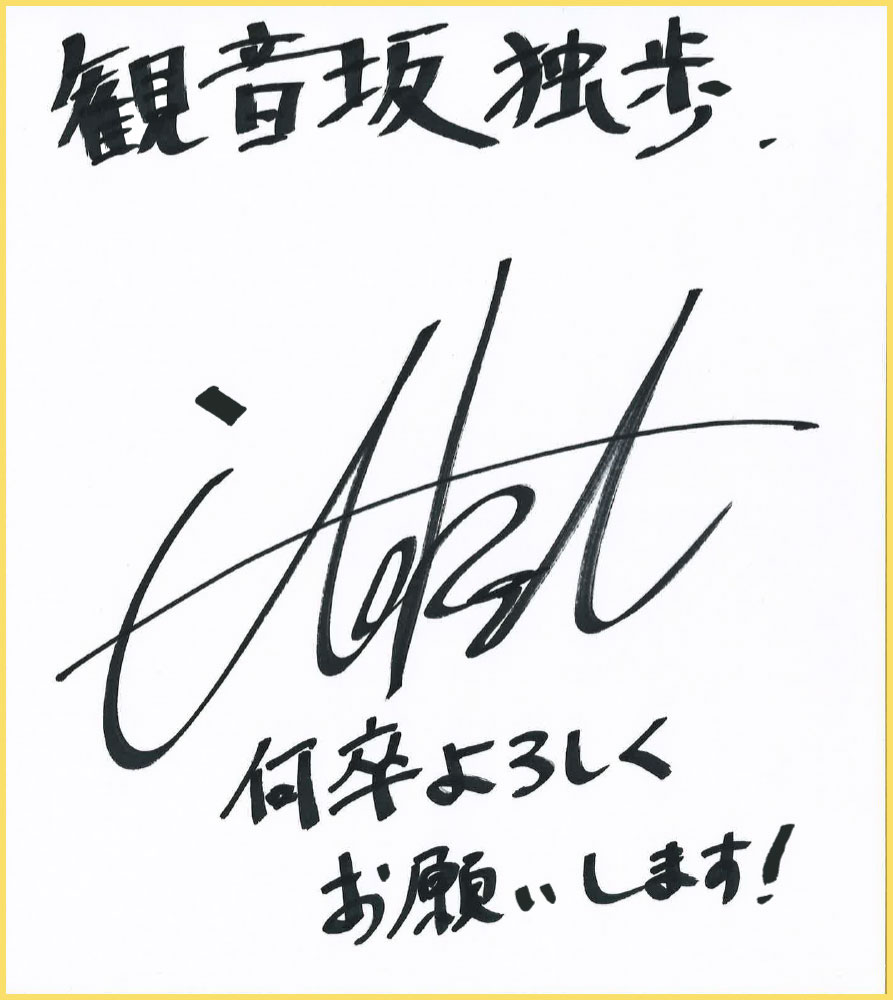 観音坂独歩.
何卒よろしく
お願いします!